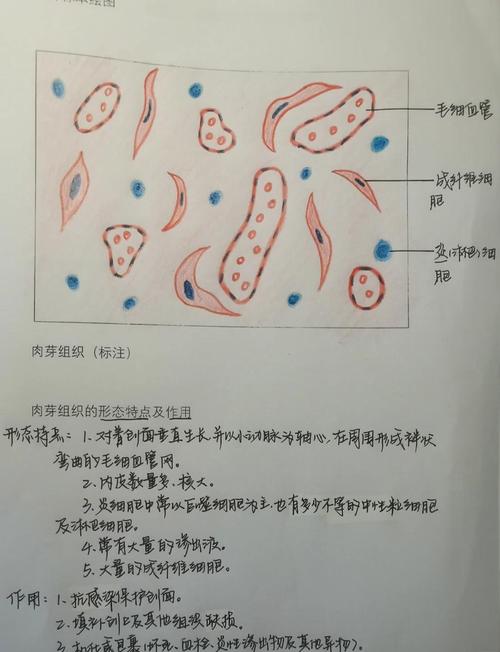 绘图
毛细血管
成纤维细
胞
炎(淋巴)细
胞
肉芽组织（标注）
肉芽组织的形态特点及作用
形态特点：1. 对着创面垂直生长,并以小动脉为轴心,在周围形成袢状
弯曲的毛细血管网。
2. 内皮数量多、核大。
3. 炎细胞中常以巨噬细胞为主,也有多少不等的中性粒细胞
及淋巴细胞。
4. 常有大量的渗出液。
5. 大量的成纤维细胞。
作用：1. 抗感染保护创面。
2. 填补创口及其他组织缺损。
3. 机化或包裹(坏死、血栓、炎性渗出物及其他异物)。